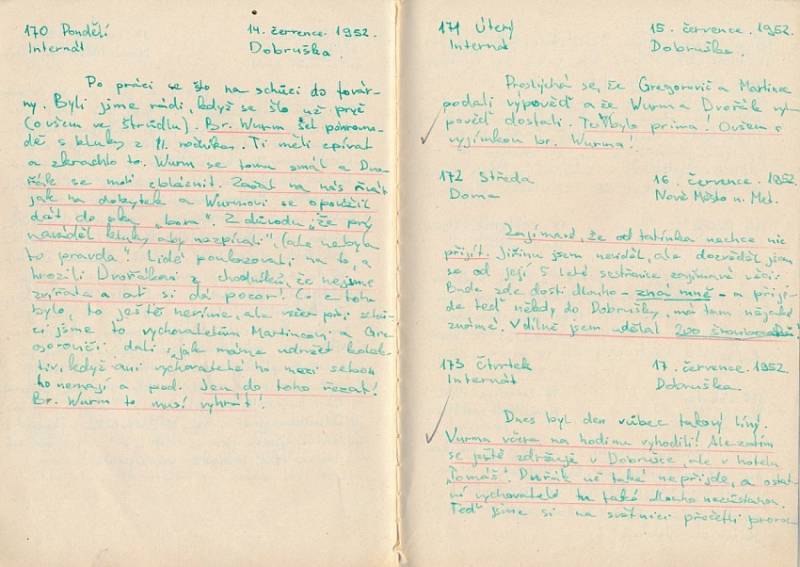 170 Pondělí 14. července. 1952.
Internát Dobruška.
Po práci se šlo na schůzi do továr-
ny. Byli jsme rádi, když se šlo už pryč
(ovšem ve štrůdlu). Br. Wurm šel pohromad-
dě s kluky z II. ročníkem. Ti měli zpívat
a zkrachlo to. Wurm se tomu smál a Dvo-
řák se mohl zbláznit. Začal na nás řvát
jak na dobytek a Wurmovi se opovážil
dát do oka „bora". Z důvodu „že prý
naváděl kluky aby nezpívali", (ale nebyla
to pravda. Lidé poukazovali na to, a
hrozili Dvořákovi z chodníků, že nejsme
zvířata a ať si dá pozor! Co z toho
bylo, to ještě nevíme, ale večer při schů-
zi jsme to vychovatelům Martincovi a Gre-
goroviči dali, jak máme udržet kolek-
tiv, když ani vychovatelé ho mezi sebou
ho nemají a pod. Jen do toho řezat!
Br. Wurm to musí vyhrát!
171 Úterý 15. července. 1952.
Internát Dobruška.
Proslýchá se, že Gregorovič a Martinec
podali výpověď a že Wurm a Dvořák výpověď dostali. To bylo prima! Ovšem s
výjimkou br. Wurma!
172 Středa 16. července. 1952
Doma Nové Město n. Met.
Zajímavé, že od tatínka nechce nic
přijít. Jiřinu jsem neviděl, ale dozvěděl jsem
se od její 5 leté sestřenice zajímavé věci.
Bude zde dosti dlouho - zná mně - a přijí-
de teď někdy do Dobrušky, má tam nějaké
známé. V dílně jsem udělal 200 šroubováků.
173 Čtvrtek 17. července. 1952
Internát Dobruška.
Dnes byl den vůbec takový líný.
Vurma včera na hodinu vyhodili! Ale zatím
se ještě zdržuje v Dobrušce, ale v hotelu
„Tomáš". Dvořák už také nepřijde, a ostat-
ní vychovatelé tu také dlouho nezůstanou.
Teď jsme si na světnici přečetli proroc